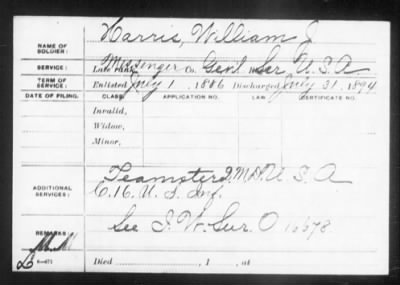 NAME OF SOLDIER: Harris, William J.
SERVICE: Late rank, Messenger Co. Genl Ser U.S.A.
TERM OF SERVICE: Enlisted July 1, 1886 Discharged July 31, 1894
DATE OF FILING. CLASS. APPLICATION NO. LAW. CERTIFICATE NO.
Invalid,
Widow,
Minor,
Teamster Q.M.D. U.S.A
ADDITIONAL SERVICES: C. 16. U.S. Inf.
See I. W. Sur. O 16678
REMARKS:
6—471
Died ........, 1 , at